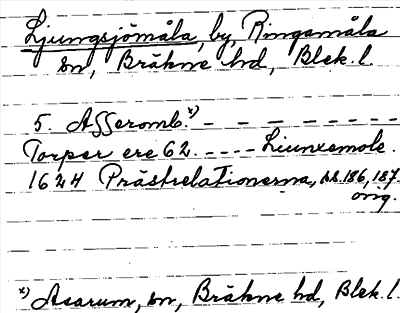 Ljungsjömåla, by, Ringamåla
sn, Bräkne hd, Blek. l.
5. Asseromb.x) - - - - - - - -
Torper ere 62. - - - - Liunxemole.
1624 Prästrelationerna, s. 186, 187
orig.
x) Asarum, sn, Bräkne hd, Blek. l.